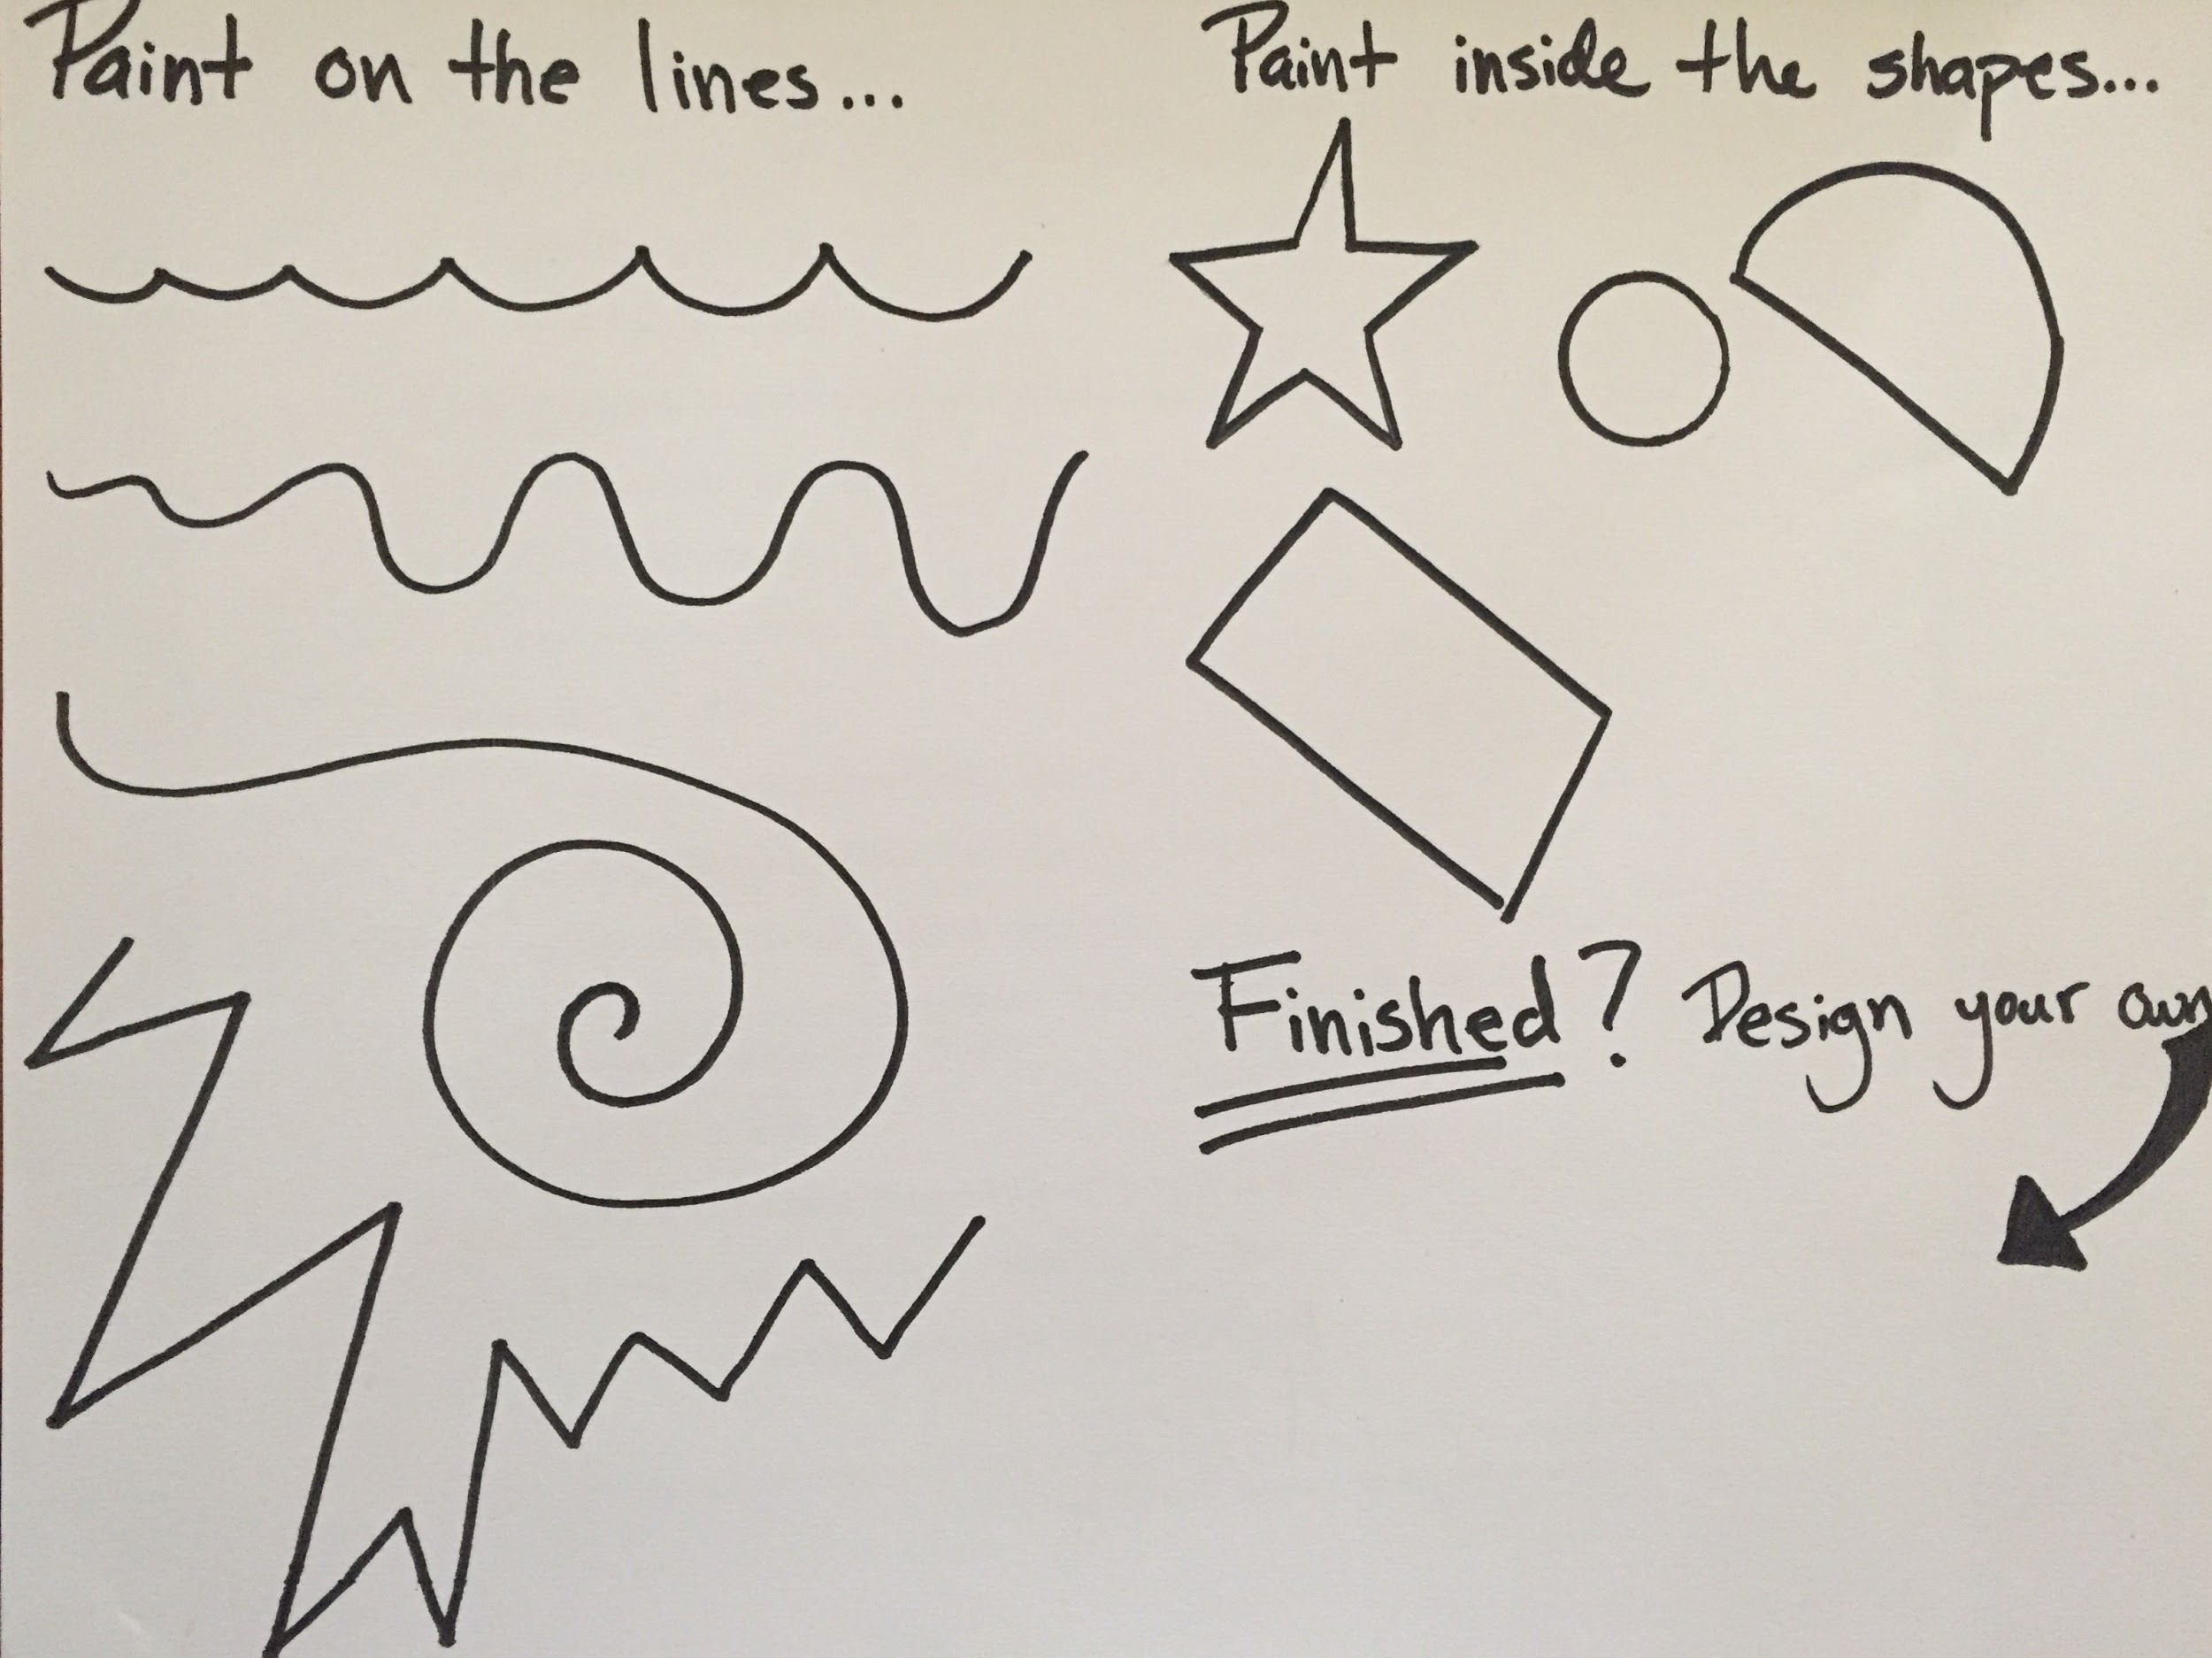 Paint on the lines...
Paint inside the shapes...
Finished? Design your own